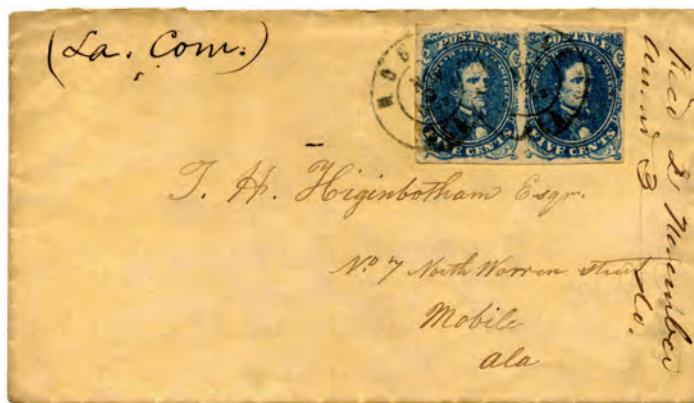 (La. Com.)
POSTAGE
FIVE CENTS
POSTAGE
FIVE CENTS
T. H. Higinbotham Esqr.
No 7 North Warren street
Mobile
Ala
Recd 2d November
3 do.